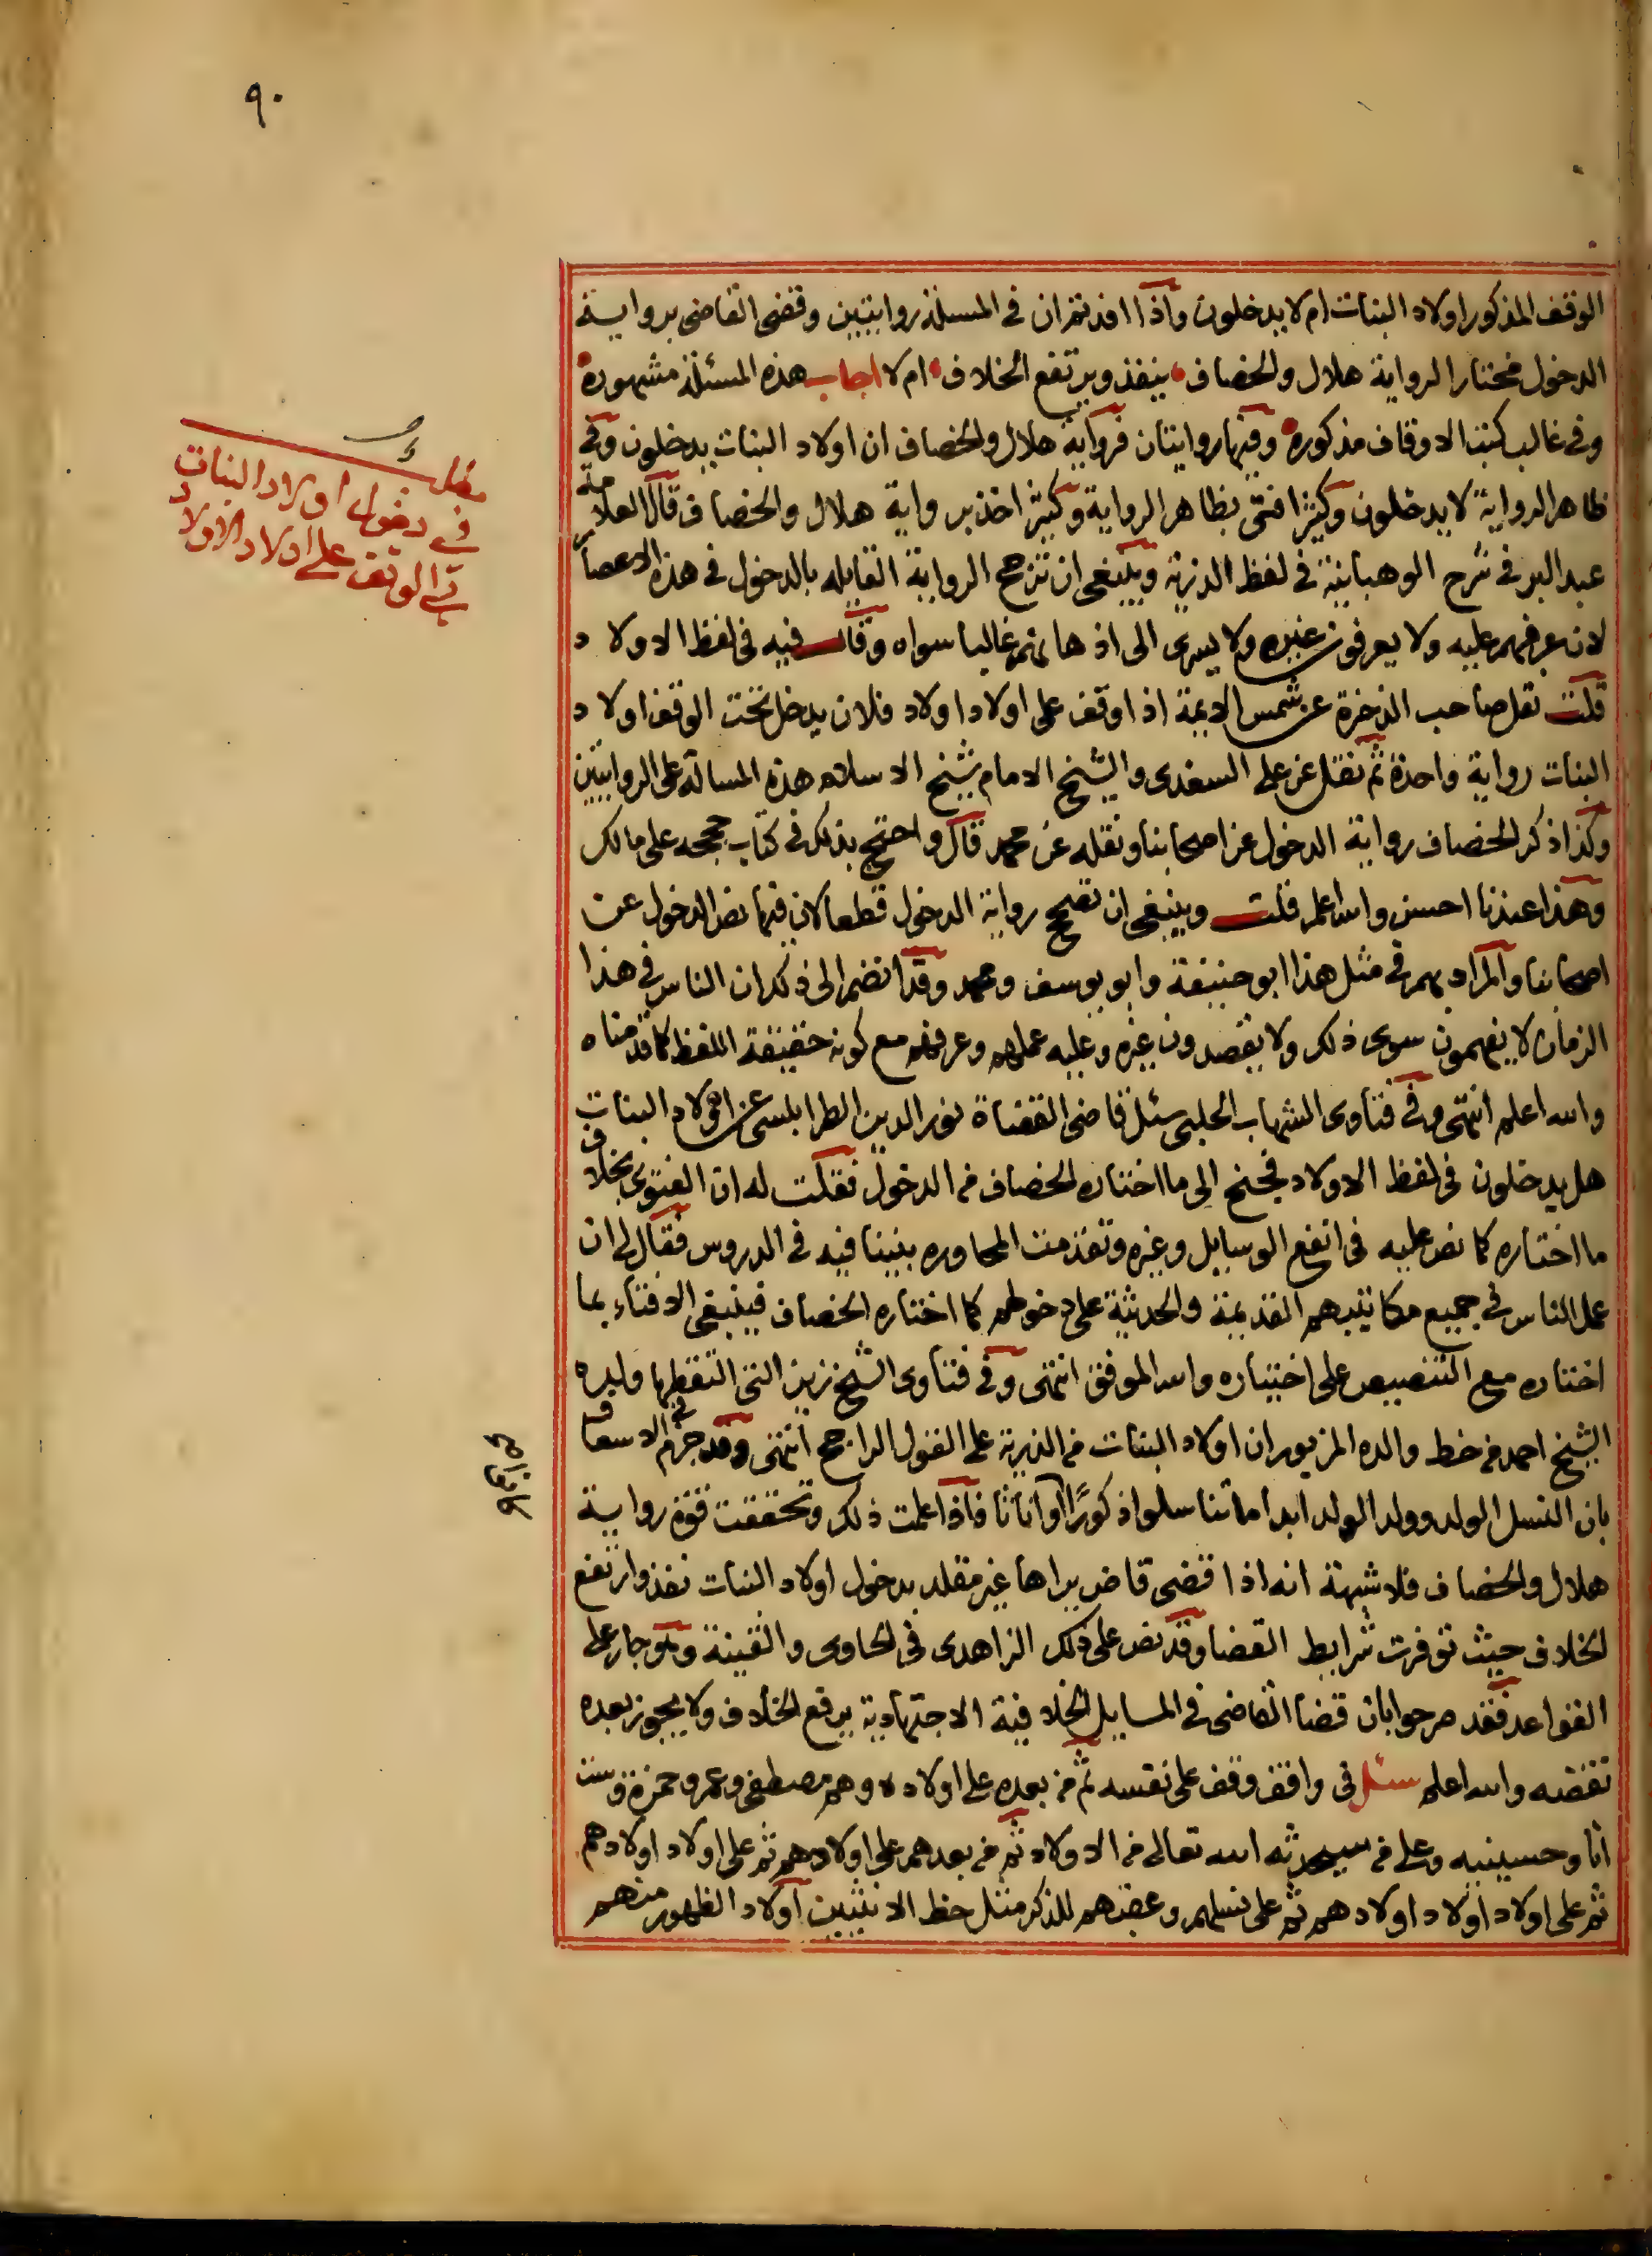 ٩٠
الوقف المذكور اولاد البنات ام لا يدخلون واذا افدتم ان في المسئلة روايتين وقضى القاضي برواية
الدخول مختارا لرواية هلال والخصاف ينفذ ويرتفع الخلاف ام لا اجاب هذه المسئلة مشهورة
وفي غالب كتب الاوقاف مذكورة وفيها روايتان فرواية هلال والخصاف ان اولاد البنات يدخلون وفي
ظاهر الرواية لا يدخلون وكثير افتى بظاهر الرواية وكثير اخذ برواية هلال والخصاف قال العلامة
عبد البر في شرح الوهبانية في لفظ الذرية وينبغي ان تترجح الرواية القايله بالدخول في هذه الاعصار
لان عرفهم عليه ولا يعرفون غيره ولا يسرى الى اذهانهم غالبا سواه وقال فيه في لفظ الاولاد
قلت نقل صاحب الذخرة عن شمس الايمة اذا وقف على اولاد اولاد فلان يدخل تحت الوقف اولاد
البنات رواية واحدة ثم نقل عن على السغدى والشيخ الامام شيخ الاسلام هذه المسالة على الروايتين
وكذا ذكر الخصاف رواية الدخول عن اصحابنا ونقله عن محمد قال واحتج بذلك في كتاب حججه على مالك
وهذا عندنا احسن والله اعلم قلت وينبغي ان تصح رواية الدخول قطعا لان فيها نص الدخول عن
اصحابنا والمراد بهم في مثل هذا ابو حنيفة وابو يوسف ومحمد وقد انضم الى ذلك ان الناس في هذا
الزمان لا يفهمون سوى ذلك ولا يقصدون غيره وعليه عملهم وعرفهم مع كونه حقيقة اللفظ كما قدمناه
والله اعلم انتهى وفي فتاوى الشهاب الحلبي سئل قاضي القضاة نور الدين الطرابلسي عن اولاد البنات
هل يدخلون في لفظ الاولاد فجنح الى ما اختاره الخصاف من الدخول فقلت له ان الفتوى بخلاف
ما اختاره كما نص عليه في انفع الوسايل وغيره وتقدمت المحاوره بيننا فيه في الدروس فقال لي ان
عمل الناس في جميع مكاتيبهم القديمة والحديثة على دخولهم كما اختاره الخصاف فينبغي الافتاء بما
اختاره مع التنصيص على اختياره والله الموفق انتهى وفي فتاوى الشيخ زين التي التقطها ولده
الشيخ احمد من خط والده المزبور ان اولاد البنات من الذرية على القول الراجح انتهى وقد جزم في الاسعاف
بان النسل الولد وولد الولد ابدا ما تناسلوا ذكورًا او اناثا فاذا علمت ذلك وتحققت قوة رواية
هلال والخصاف فلا شبهة انه اذا قضى قاض يراها غير مقلد بدخول اولاد البنات نفذ وارتفع
الخلاف حيث توفرت شرايط القضا وقد نص على ذلك الزاهدى في الحاوى والقنية وهو جار على
القواعد فقد صرحوا بان قضا القاضي في المسايل الخلافية الاجتهادية يرفع الخلاف ولا يجوز بعده
نقضه والله اعلم سئل في واقف وقف على نفسه ثم من بعده على اولاده وهم مصطفى وعمر وحمزة وست
انا وحسينيه وعلى من سيحدثه الله تعالى من الاولاد ثم من بعدهم على اولادهم ثم على اولاد اولادهم
ثم على اولاد اولاد اولادهم ثم على نسلهم وعقبهم للذكر مثل حظ الانثيين اولاد الظهور منهم
مطلب
في دخول اولاد البنات
في الوقف على اولاد الاولاد